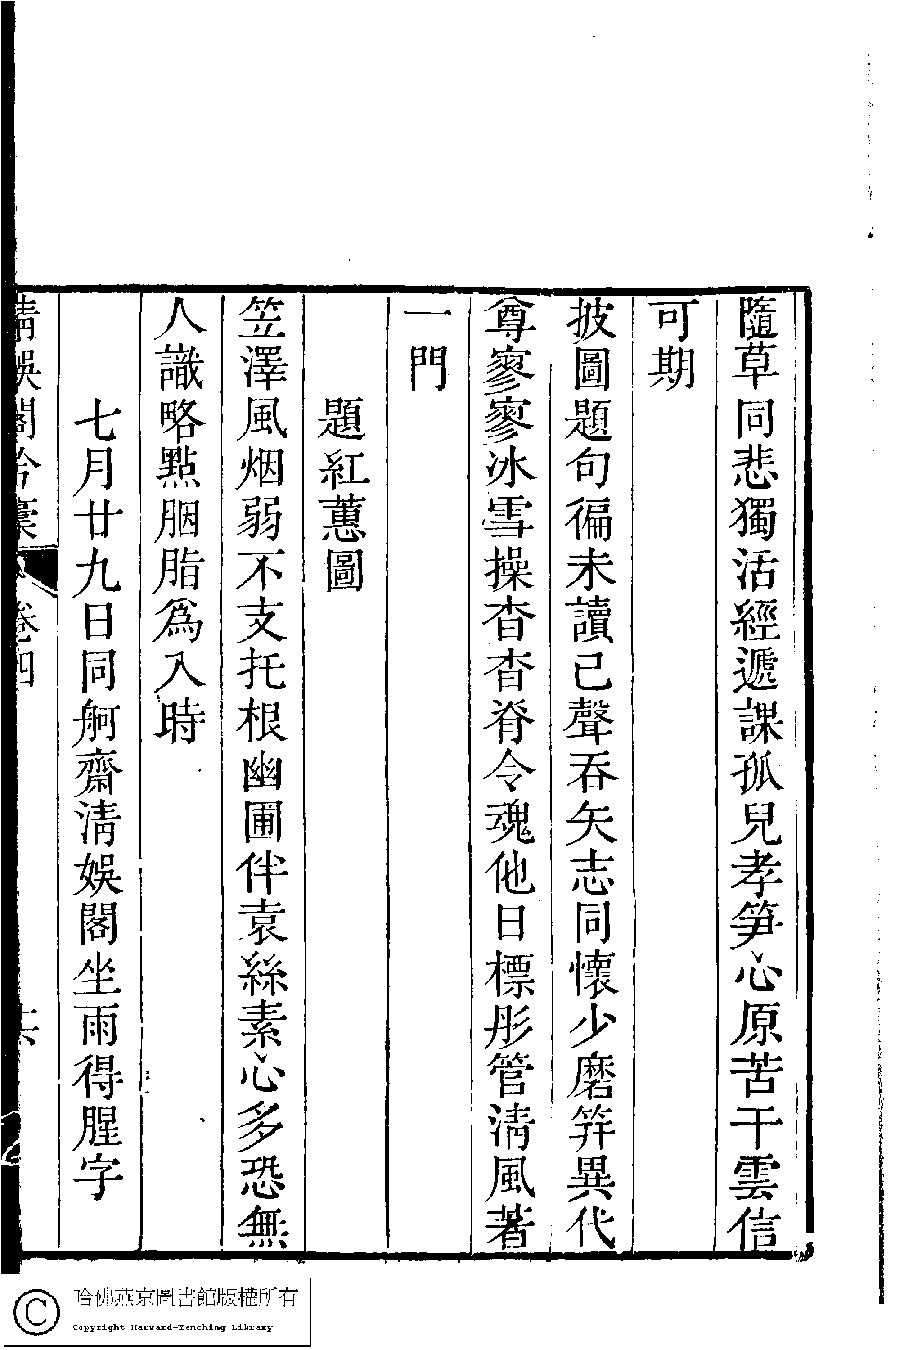 隨草同悲獨活經遞課孤兒孝筍心原苦干雲信
可期
披圖題句徧未讀己聲吞矢志同懷少磨筓異代
尊寥寥冰雪操杳杳脊令魂他日標彤管清風著
一門
題紅蕙圖
笠澤風烟弱不支托根幽圃伴袁絲素心多恐無
人識略點胭脂爲入時
七月廿九日同舸齋清娛閣坐雨得腥字
清娛閣吟稾 卷四
哈佛燕京圖書館版權所有
Copyright Harvard-Yenching Library